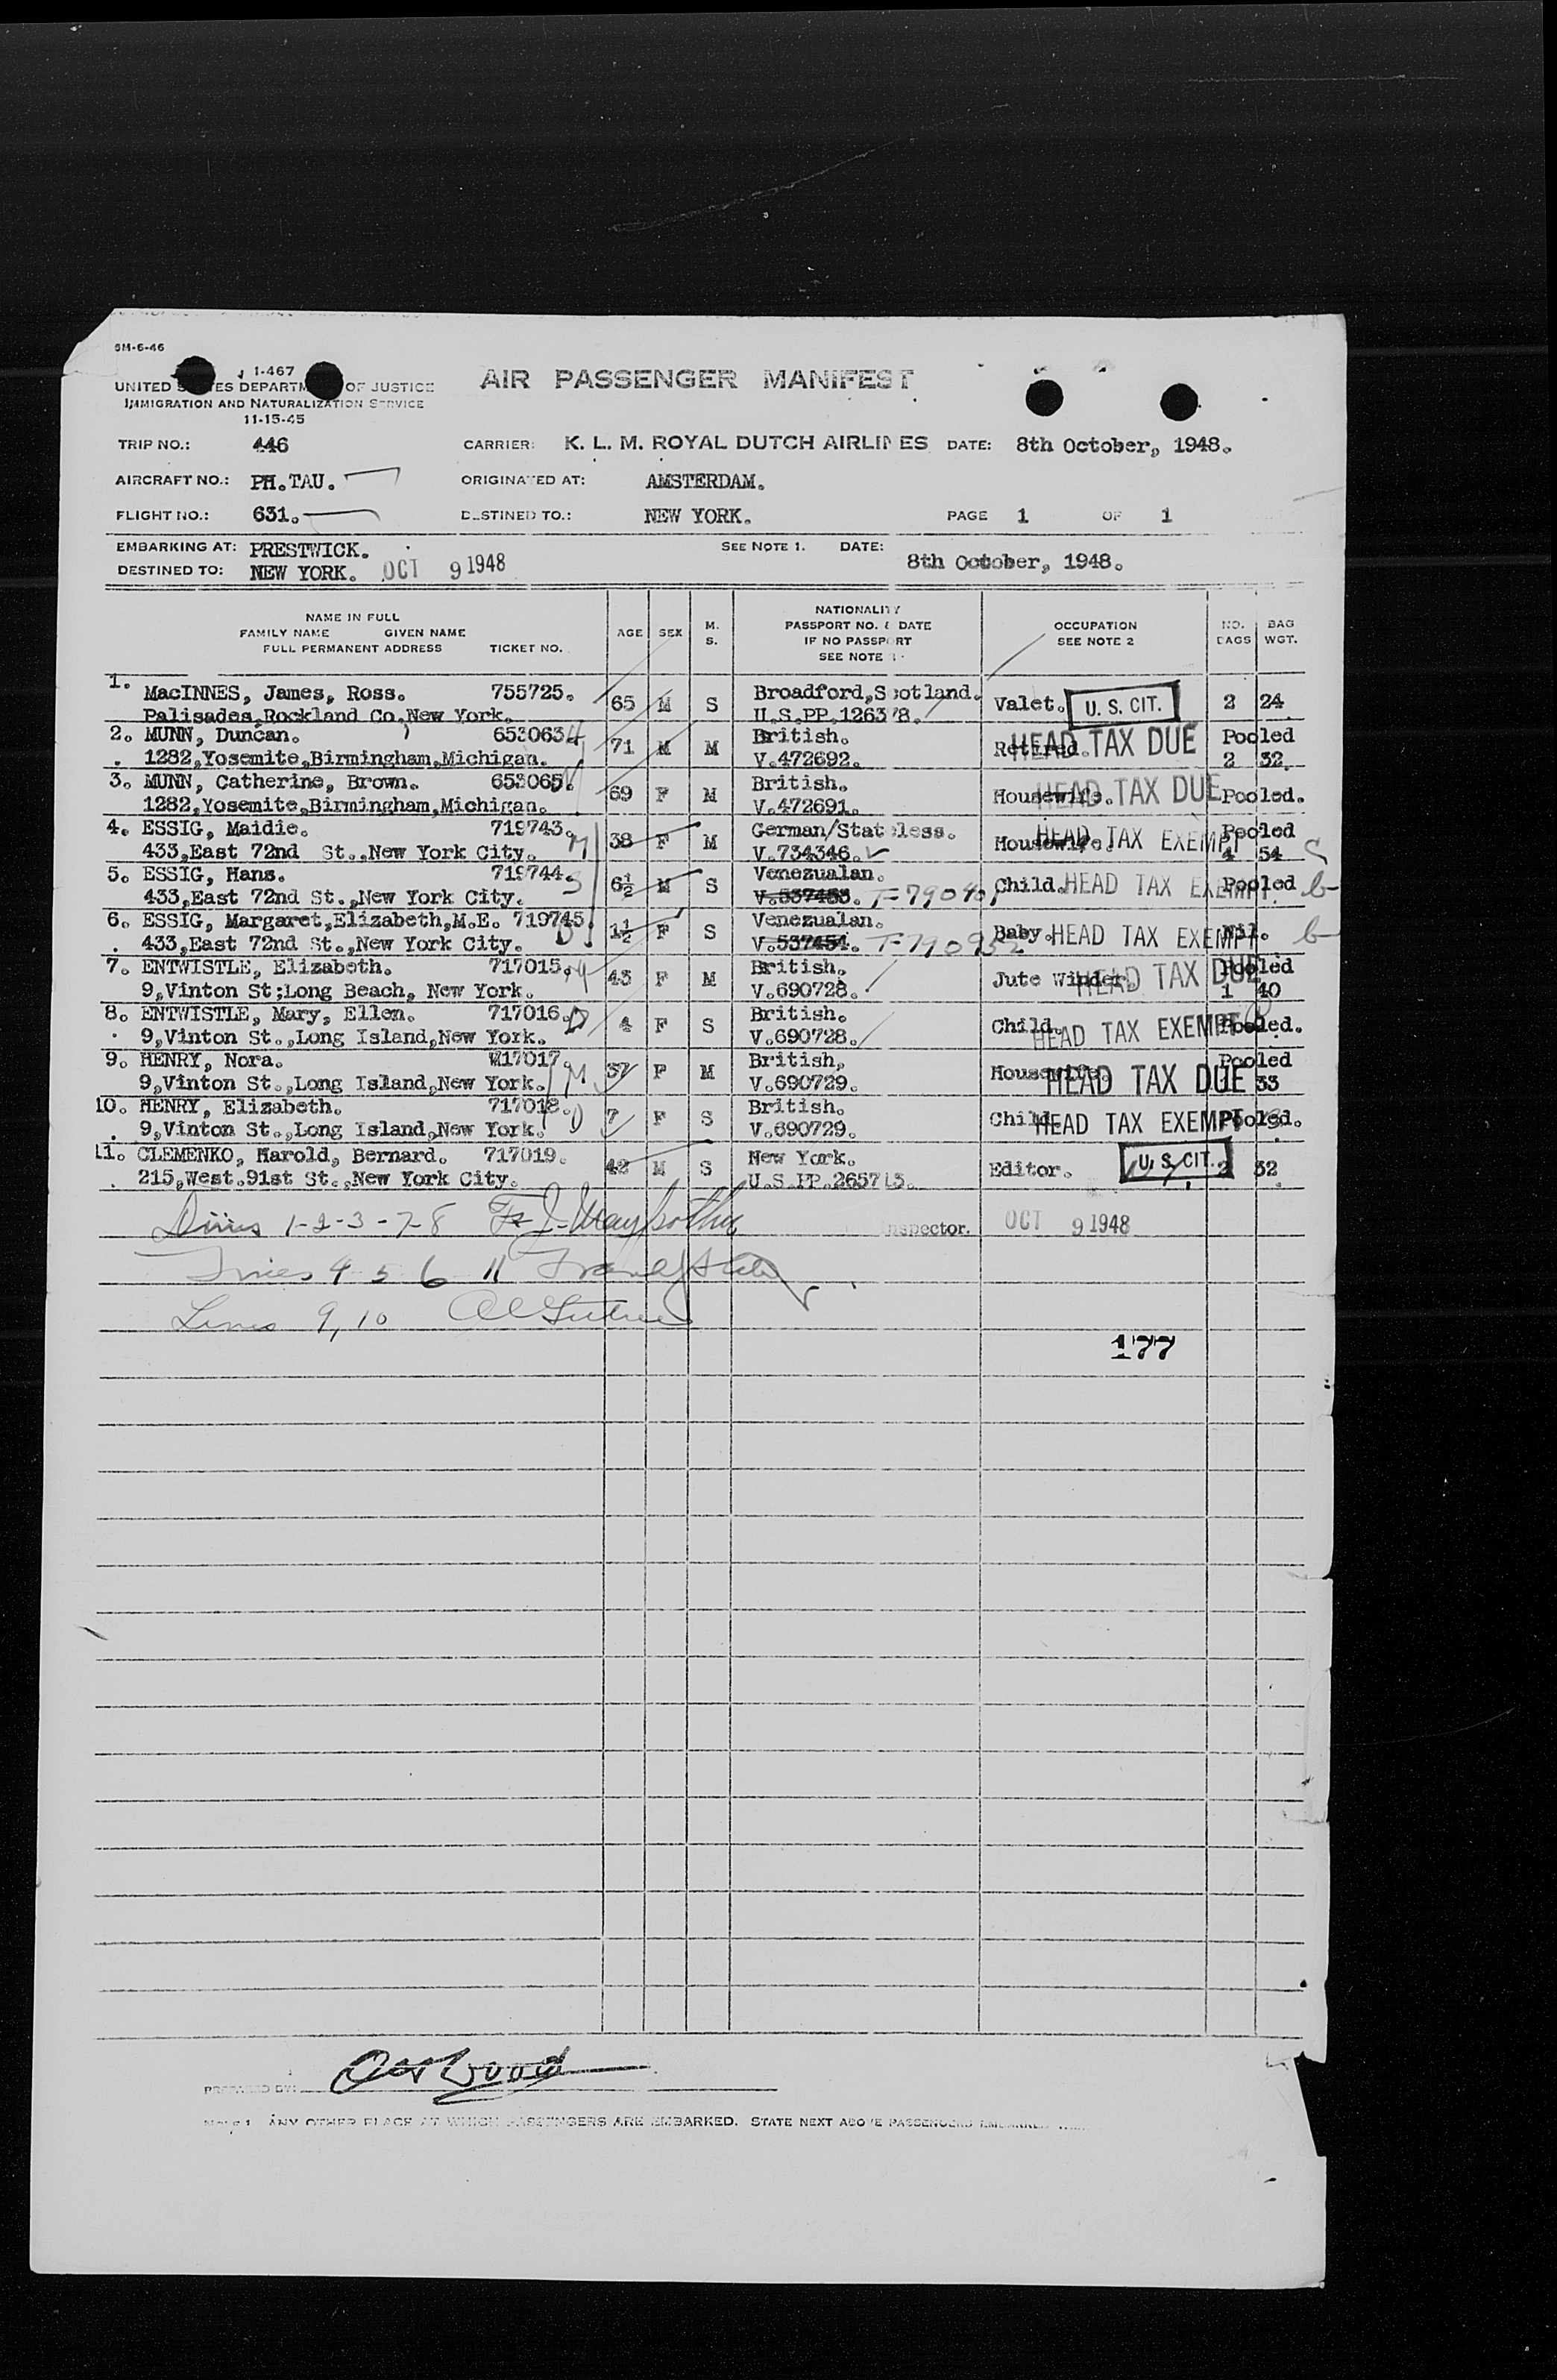 5M-6-46
I-467
UNITED STATES DEPARTMENT OF JUSTICE
IMMIGRATION AND NATURALIZATION SERVICE
11-15-45
AIR PASSENGER MANIFEST
TRIP NO.: 446 CARRIER: K. L. M. ROYAL DUTCH AIRLINES DATE: 8th October, 1948.
AIRCRAFT NO.: PH.TAU. ORIGINATED AT: AMSTERDAM.
FLIGHT NO.: 631. DESTINED TO.: NEW YORK. PAGE 1 OF 1
EMBARKING AT: PRESTWICK. SEE NOTE 1. DATE: 8th October, 1948.
DESTINED TO: NEW YORK. OCT 9 1948
NAME IN FULL
FAMILY NAME GIVEN NAME
FULL PERMANENT ADDRESS TICKET NO.
AGE SEX M. S.
NATIONALITY
PASSPORT NO. & DATE
IF NO PASSPORT
SEE NOTE
OCCUPATION
SEE NOTE 2
NO. BAGS
BAG WGT.
1. MacINNES, James, Ross. 755725. 65 M S Broadford, Scotland. Valet. U. S. CIT. 2 24
Palisades, Rockland Co, New York. U.S.PP.126378.
2. MUNN, Duncan. 653063 71 M M British. Retired. HEAD TAX DUE Pooled
1282, Yosemite, Birmingham, Michigan. V.472692. 2 32.
3. MUNN, Catherine, Brown. 653065. 69 F M British. Housewife. HEAD TAX DUE Pooled.
1282, Yosemite, Birmingham, Michigan. V.472691.
4. ESSIG, Maidie. 719743. M 38 F M German/Stateless. Housewife. HEAD TAX EXEMPT Pooled
433, East 72nd St., New York City. V.734346. 4 54
5. ESSIG, Hans. 719744. S 6½ M S Venezualan. Child. HEAD TAX EXEMPT Pooled
433, East 72nd St., New York City. V.537453.
6. ESSIG, Margaret, Elizabeth, M.E. 719745 D 1½ F S Venezualan. Baby. HEAD TAX EXEMPT Nil.
433, East 72nd St., New York City. V.537454. T-790952
7. ENTWISTLE, Elizabeth. 717015. M 43 F M British. Jute Winder. HEAD TAX DUE Pooled
9, Vinton St; Long Beach, New York. V.690728. 1 40
8. ENTWISTLE, Mary, Ellen. 717016. D 4 F S British. Child. HEAD TAX EXEMPT Pooled.
9, Vinton St., Long Island, New York. V.690728.
9. HENRY, Nora. 717017 M 37 F M British, Housewife. HEAD TAX DUE Pooled
9, Vinton St., Long Island, New York. V.690729. 33
10. HENRY, Elizabeth. 717018. D 7 F S British. Child. HEAD TAX EXEMPT Pooled.
9, Vinton St., Long Island, New York. V.690729.
11. CLEMENKO, Harold, Bernard. 717019. 42 M S New York. Editor. U. S. CIT. 2 32
215, West. 91st St., New York City. U.S.PP.265713.
Lines 1-2-3-7-8 Inspector. OCT 9 1948
Lines 4 5 6 11
Lines 9, 10
177
PREPARED BY:
NOTE 1. ANY OTHER PLACE AT WHICH PASSENGERS ARE EMBARKED. STATE NEXT ABOVE PASSENGERS EMBARKED